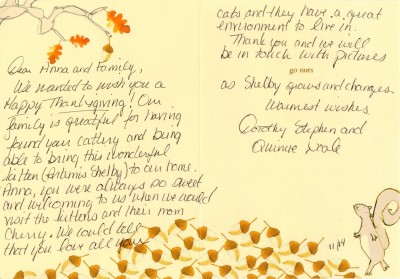 Dear Anna and family,
We wanted to wish you a
Happy Thanksgiving! Our
family is greatful for having
found your cattery and being
able to bring this wonderful
kitten (Artemis Shelby) to our home.
Anna, you were always so sweet
and welcoming to us when we would
visit the kittens and their mom
Cherry. We could tell
that you love all your
cats and they have a great
environment to live in.
Thank you and we will
be in touch with pictures
go nuts
as Shelby grows and changes.
Warmest wishes,
Dorothy Stephen and
Quincie
11/14